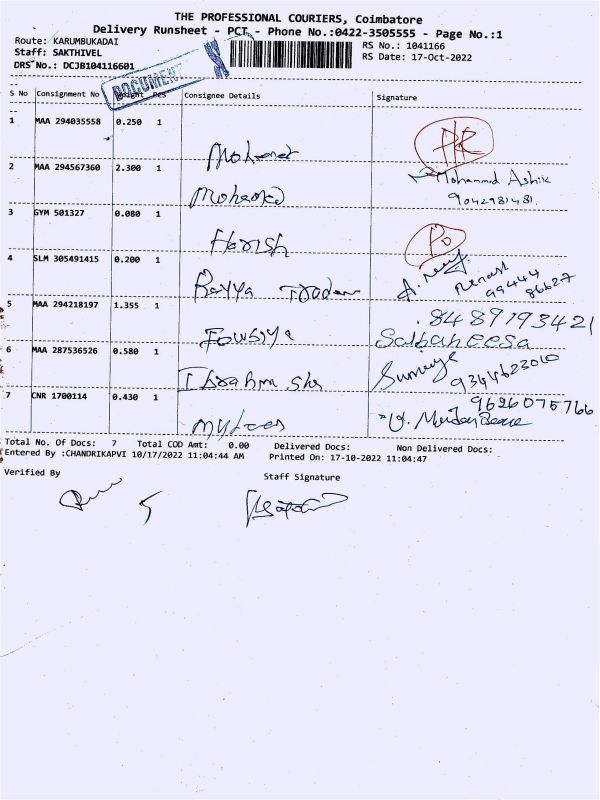 THE PROFESSIONAL COURIERS, Coimbatore
Delivery Runsheet - PCT - Phone No.:0422-3505555 - Page No.:1
Route: KARUMBUKADAI
RS No.: 1041166
Staff: SAKTHIVEL
RS Date: 17-Oct-2022
DRS No.: DCJB104116601
DOCUMENT
S No Consignment No Weight Pcs Consignee Details Signature
1 MAA 294035558 0.250 1
2 MAA 294567360 2.300 1 Mohamed
Mohammed Ashik
9042981481.
3 GYM 501327 0.080 1
Harish
4 SLM 305491415 0.200 1
99444
86627
5 MAA 294218197 1.355 1
8489193421
Fowsiya
6 MAA 287536526 0.580 1
9344623010
7 CNR 1700114 0.430 1
9626075766
Total No. Of Docs: 7 Total COD Amt: 0.00 Delivered Docs: Non Delivered Docs:
Entered By :CHANDRIKAPVI 10/17/2022 11:04:44 AM Printed On: 17-10-2022 11:04:47
Verified By
Staff Signature